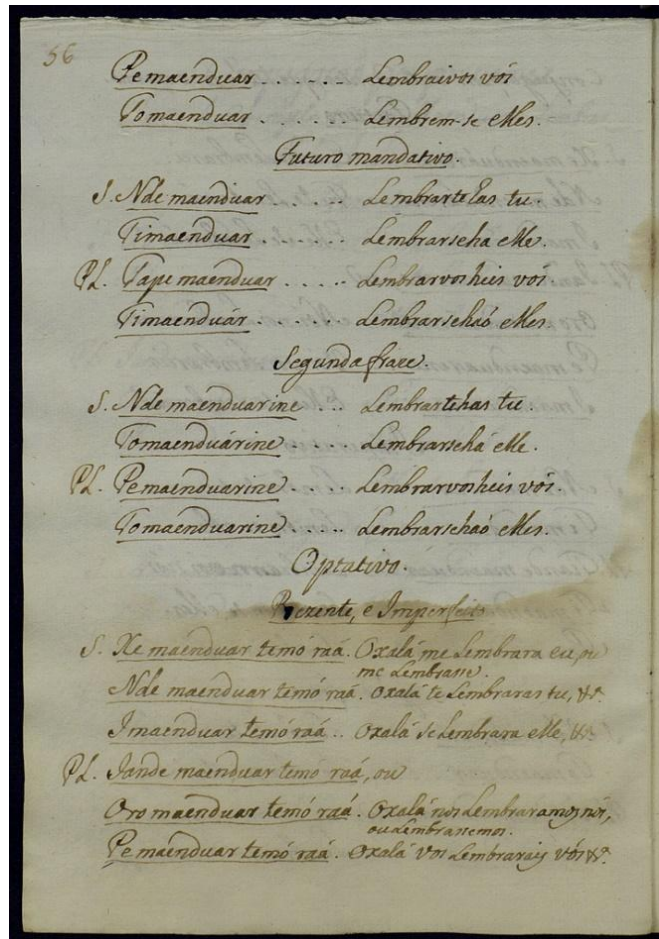 56
Pemaenduar . . . . . . Lembraivos vós
Tomaenduar . . . . . . Lembrem-se elles.
Futuro mandativo.
S. Nde maenduar . . . . Lembrartelas tu.
Timaenduar . . . . . Lembrarseha elle.
Pl. Tape maenduar . . . . . Lembrarvosheis vós
Timaenduár . . . . . . Lembrarsehaó elles.
Segunda fraze.
S. Nde maenduarine . . . Lembrartehas tu.
Tomaenduárine . . . . Lembrarsehá elle.
Pl. Pemaenduarine . . . . Lembrarvosheis vós.
Tomaenduarine . . . . Lembrarsehaó elles.
Optativo.
Prezente, e Imperfeito
S. Xe maenduar temó raá. Oxalá me Lembrara eu, ou
me Lembrasse.
Nde maenduar temó raá. Oxalá te Lembraras tu, &c.
Imaenduar temó raá . . Oxalá se Lembrara elle, &c.
Pl. Jande maenduar temó raá, ou
Oro maenduar temó raá. Oxalá nos Lembraramos nós,
ou Lembrassemos.
Pe maenduar temó raá. Oxalá vos Lembrarais vós &c.